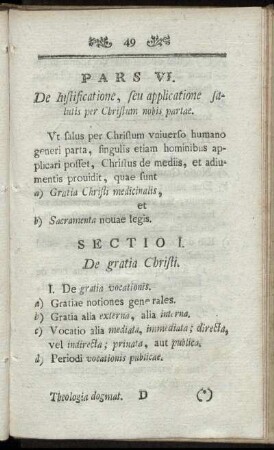 49
PARS VI.
De Iustificatione, seu applicatione sa-
lutis per Christum nobis partae.
Vt salus per Christum vniuerso humano
generi parta, singulis etiam hominibus ap-
plicari posset, Christus de mediis, et adiu-
mentis prouidit, quae sunt
a) Gratia Christi medicinalis,
et
b) Sacramenta nouae legis.
SECTIO I.
De gratia Christi.
I. De gratia vocationis.
a) Gratiae notiones generales.
b) Gratia alia externa, alia interna.
c) Vocatio alia mediata, immediata; directa,
vel indirecta; priuata, aut publica.
d) Periodi vocationis publicae.
Theologia dogmat. D (*)